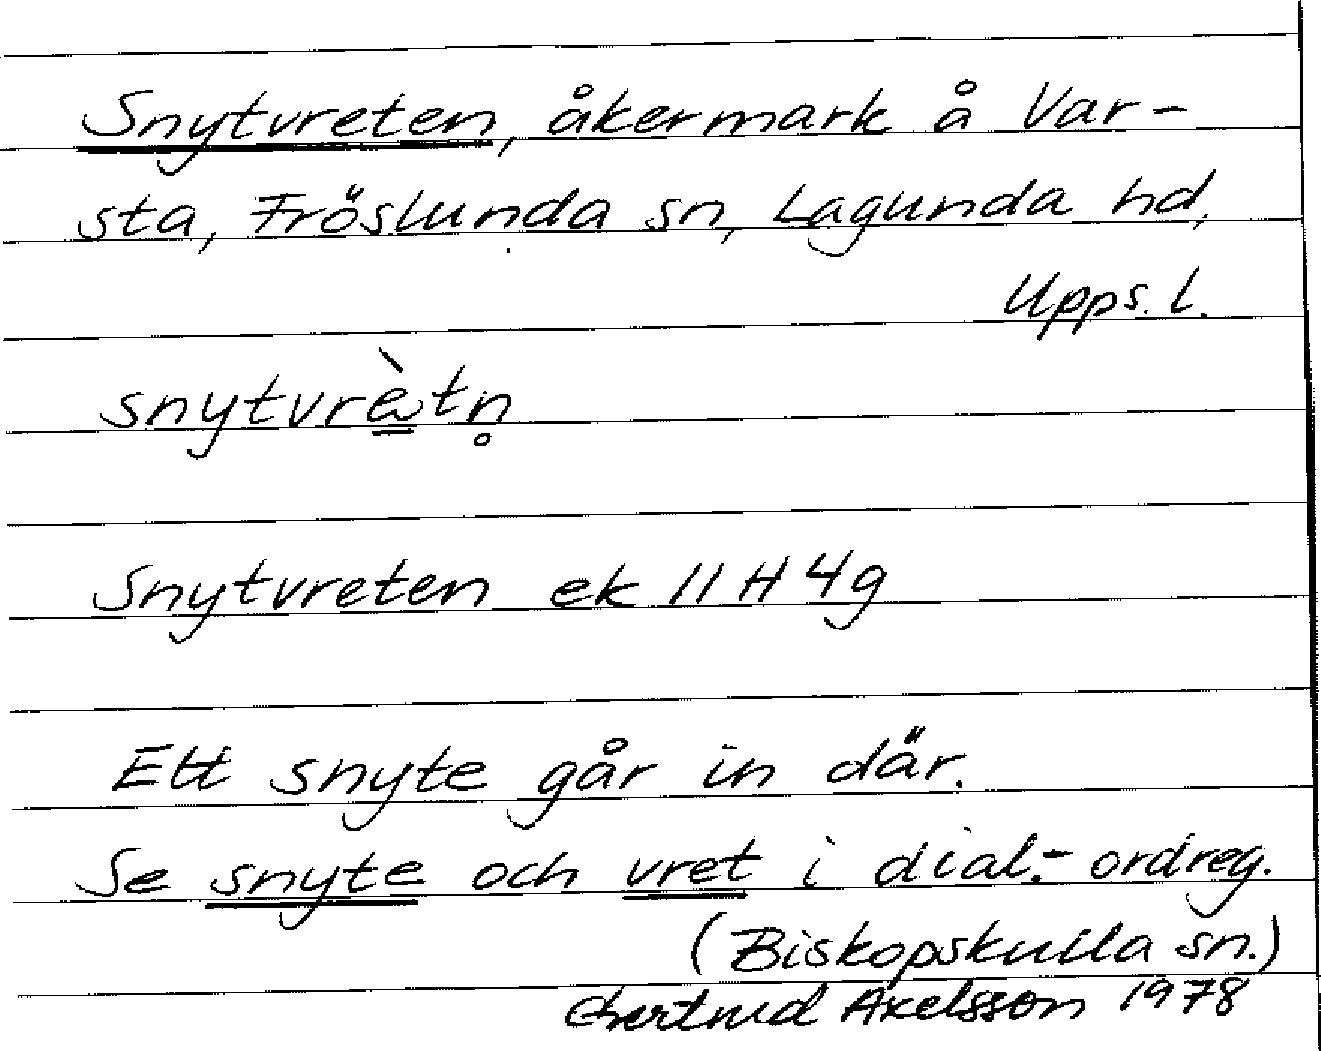 Snytvreten, åkermark å Var-
sta, Fröslunda sn, Lagunda hd,
Upps. l.
snytvrètn̥
Snytvreten ek 11 H 4g
Ett snyte går in där.
Se snyte och vret i dial.-ordreg.
(Biskopskulla sn.)
Gertrud Axelsson 1978